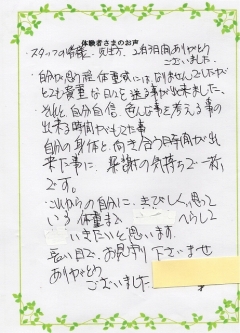 体験者さまのお声
スタッフの皆様、先生方、2月3日間ありがとう
ございました。
自分の思う程、体重減にはなりませんでしたが
とても貴重な日々を送る事が出来ました。
それと、自分自信、色んな事を考える事の
出来る時間がもてた事
自分の身体と向き合う時間が出
来た事に、感謝の気持ちで一杯
です。
これからの自分に、きびしく思って
いる体重まで へらして
いきたいと思います。
長い目で、お見守り下さいませ
ありがとう
ございました